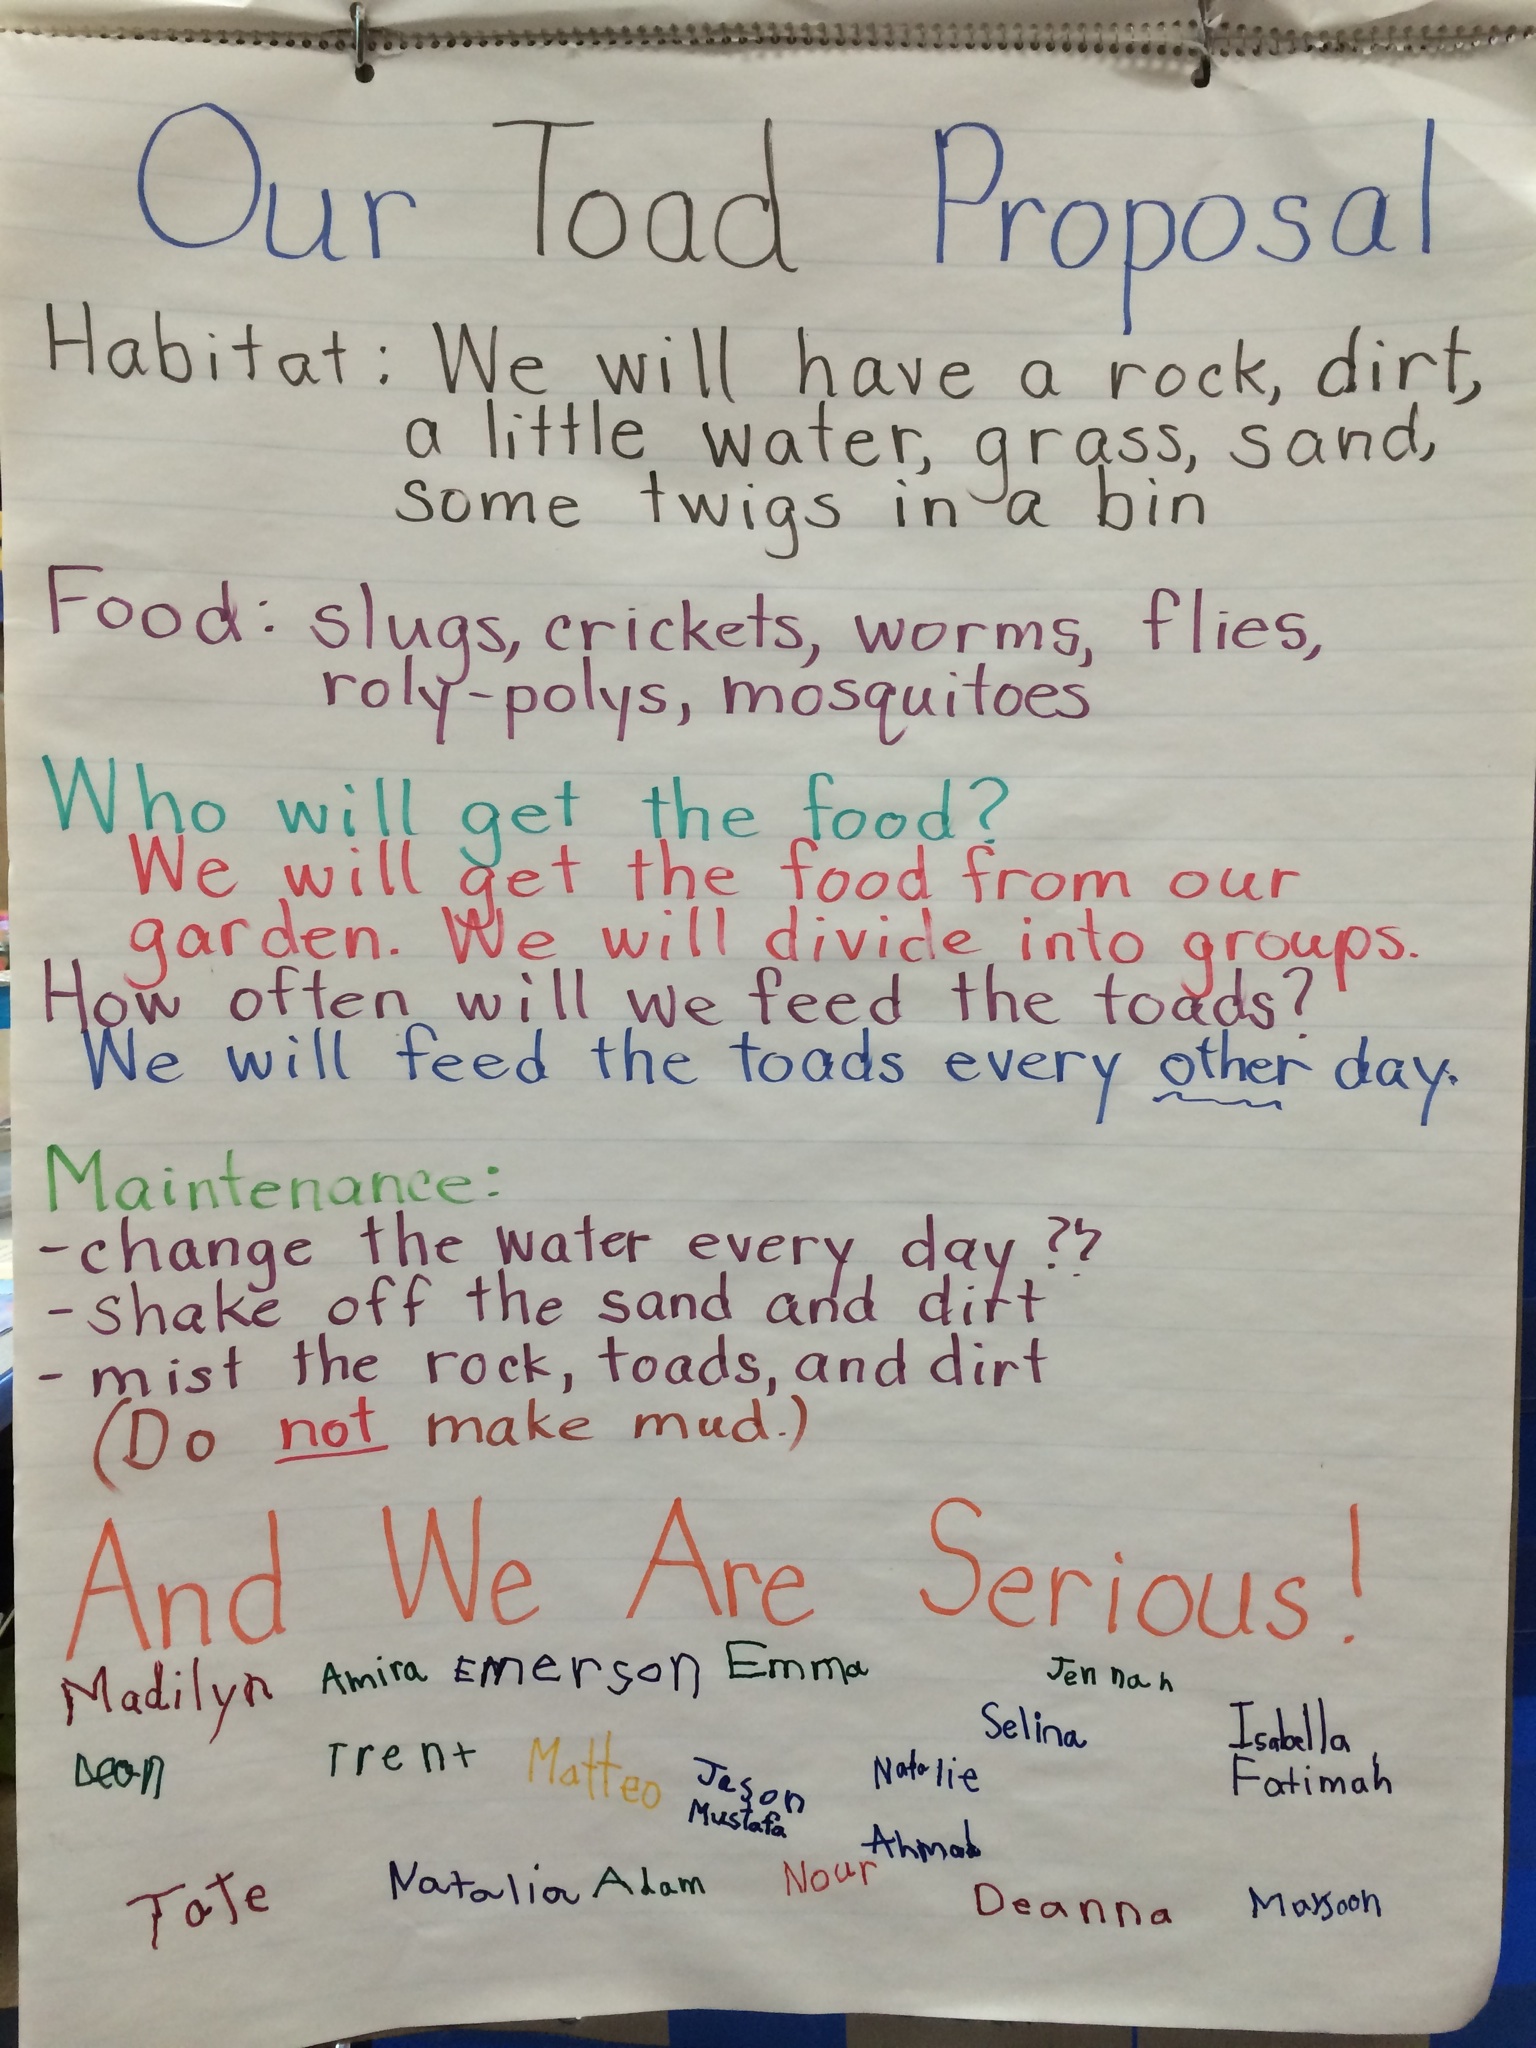 Our Toad Proposal
Habitat: We will have a rock, dirt,
a little water, grass, sand,
some twigs in a bin
Food: slugs, crickets, worms, flies,
roly-polys, mosquitoes
Who will get the food?
We will get the food from our
garden. We will divide into groups.
How often will we feed the toads?
We will feed the toads every other day.
Maintenance:
- change the water every day??
- shake off the sand and dirt
- mist the rock, toads, and dirt
(Do not make mud.)
And We Are Serious!
Madilyn Amira Emerson Emma Jennah
Selina Isabella
Dean Trent Matteo Jason Natalie Fatimah
Mustafa
Ahmad
Tate Natalia Adam Nour Deanna